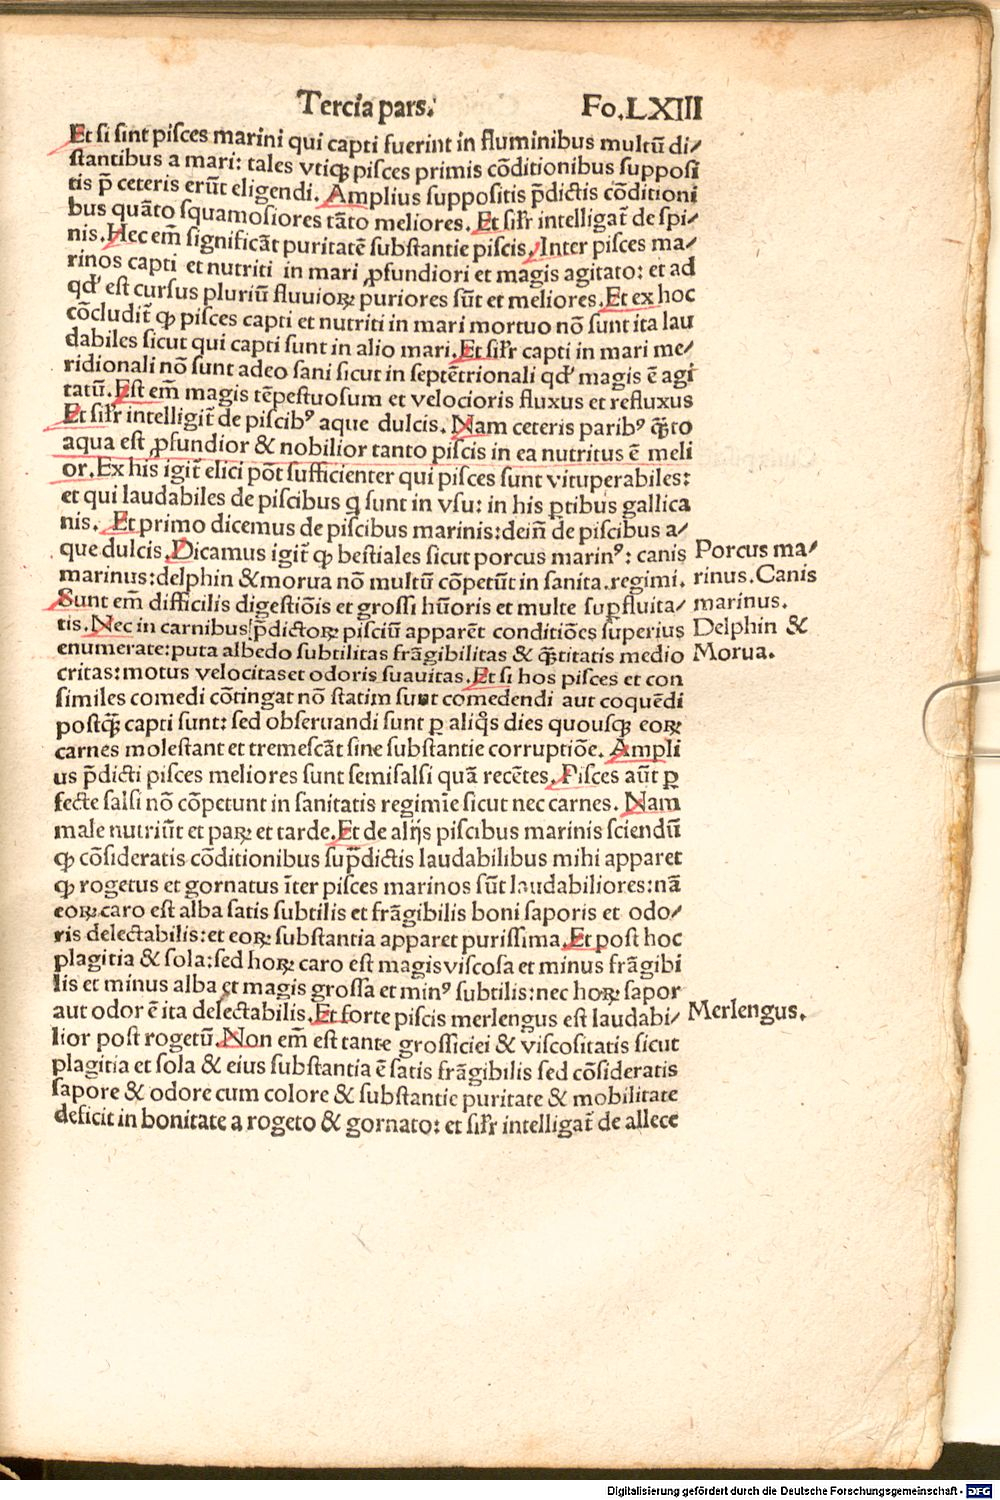 Tercia pars. Fo.LXIII
Et si sint pisces marini qui capti fuerint in fluminibus multū di/
stantibus a mari: tales vtiqꝫ pisces primis cōditionibus supposi
tis p̄ ceteris erūt eligendi. Amplius suppositis p̄dictis cōditioni
bus quāto squamosiores tāto meliores. Et silr̄ intelligat̄ de spi/
nis. Hec em̄ significāt puritatē substantie piscis. Inter pisces ma/
rinos capti et nutriti in mari ꝓfundiori et magis agitato: et ad
qd' est cursus pluriū fluuioꝝ puriores sūt et meliores. Et ex hoc
cōcludit̄ ꝙ pisces capti et nutriti in mari mortuo nō sunt ita lau
dabiles sicut qui capti sunt in alio mari. Et silr̄ capti in mari me/
ridionali nō sunt adeo sani sicut in septētrionali qd' magis ē agi
tatū. Est em̄ magis tēpestuosum et velocioris fluxus et refluxus
Et silr̄ intelligit̄ de piscibꝰ aque dulcis. Nam ceteris paribꝰ q̄̃to
aqua est ꝓfundior & nobilior tanto piscis in ea nutritus ē meli
or. Ex his igit̄ elici pōt sufficienter qui pisces sunt vituperabiles:
et qui laudabiles de piscibus q̄ sunt in vsu: in his ꝑtibus gallica
nis. Et primo dicemus de piscibus marinis: dein̄ de piscibus a/
que dulcis. Dicamus igit̄ ꝙ bestiales sicut porcus marinꝰ: canis
marinus: delphin & morua nō multū cōpetūt in sanita. regimi.
Sunt em̄ difficilis digestiōis et grossi hūoris et multe suꝑfluita/
tis. Nec in carnibus p̄dictoꝝ pisciū apparēt conditiōes superius
enumerate: puta albedo subtilitas frāgibilitas & q̄̃titatis medio
critas: motus velocitas et odoris suauitas. Et si hos pisces et con
similes comedi cōtingat nō statim sunt comedendi aut coquēdi
postq̄̃ capti sunt: sed obseruandi sunt ꝑ aliq̄s dies quousqꝫ eoꝝ
carnes molestant et tremescāt sine substantie corruptiōe. Ampli
us p̄dicti pisces meliores sunt semisalsi quā recētes. Pisces aūt ꝑ
fecte salsi nō cōpetunt in sanitatis regimīe sicut nec carnes. Nam
male nutriūt et paꝝ et tarde. Et de alijs piscibus marinis sciendū
ꝙ cōsideratis cōditionibus sup̄dictis laudabilibus mihi apparet
ꝙ rogetus et gornatus īter pisces marinos sūt laudabiliores: nā
eoꝝ caro est alba satis subtilis et frāgibilis boni saporis et odo/
ris delectabilis: et eoꝝ substantia apparet purissima. Et post hoc
plagitia & sola: sed hoꝝ caro est magis viscosa et minus frāgibi
lis et minus alba et magis grossa et minꝰ subtilis: nec hoꝝ sapor
aut odor ē ita delectabilis. Et forte piscis merlengus est laudabi/
lior post rogetū. Non em̄ est tante grossiciei & viscositatis sicut
plagitia et sola & eius substantia ē satis frāgibilis sed cōsideratis
sapore & odore cum colore & substantie puritate & mobilitate
deficit in bonitate a rogeto & gornato: et silr̄ intelligat̄ de allece
Porcus ma/
rinus. Canis
marinus.
Delphin &
Morua.
Merlengus.
Digitalisierung gefördert durch die Deutsche Forschungsgemeinschaft - DFG